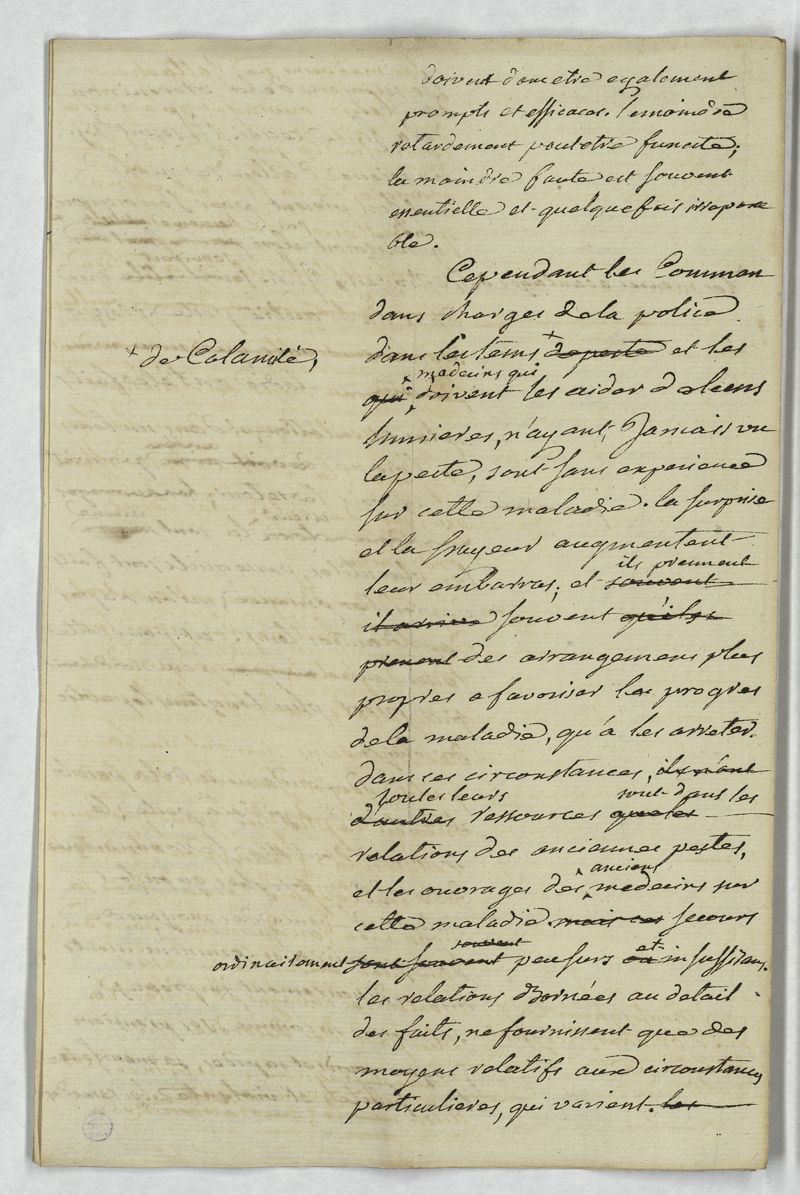 doivent donc etre egalement
prompts et efficaces. le moindre
retardement peut etre funeste;
la moindre faute est souvent
essentielle et quelque fois irrepara
ble.
Cependant les Comman
dans charges de la police
+ de Calamité,
dans les tems + de peste et les
medecins qui
qui doivent les aider de leurs
lumieres, n'ayant, Jamais vu
la peste, sont sans experience
sur cette maladie. la surprise
et la frayeur augmentent
ils prennent
leur embarras; et souvent
il arrive souvent qu'ils
prenent des arrangemens plus
propres a favoriser les progres
de la maladie, qu'a les arreter.
dans ces circonstances, ils n'ont
toutes leurs sont dans les
d'autres ressources que les
relations des anciennes pestes,
anciens
et les ouvrages des medecins sur
cette maladie. mais ces secours
souvent et
ordinairement sont souvent peu surs ou insuffisans.
les relations Bornées au detail
des faits, ne fournissent que des
moyens relatifs aux circonstances
particulieres, qui varient. les